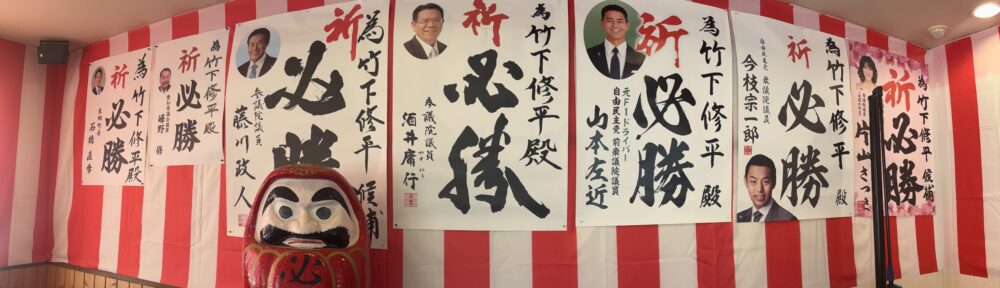 為竹下修平殿
祈必勝
石橋直季
為竹下修平殿
祈必勝
愛知県議会議員
峰野修
為竹下修平候補
祈必勝
参議院議員
藤川政人
為竹下修平殿
祈必勝
参議院議員
酒井庸行
やすゆき
為竹下修平殿
祈必勝
元Fードライバー
自由民主党 前衆議院議員
山本左近
為竹下修平殿
祈必勝
自由民主党 衆議院議員
今枝宗一郎
為竹下修平候補
祈必勝
片山さつき
必